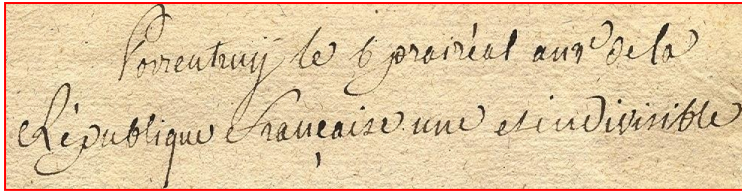 Porrentruy le 6 prairéal an 2e de la
République française une et indivisible